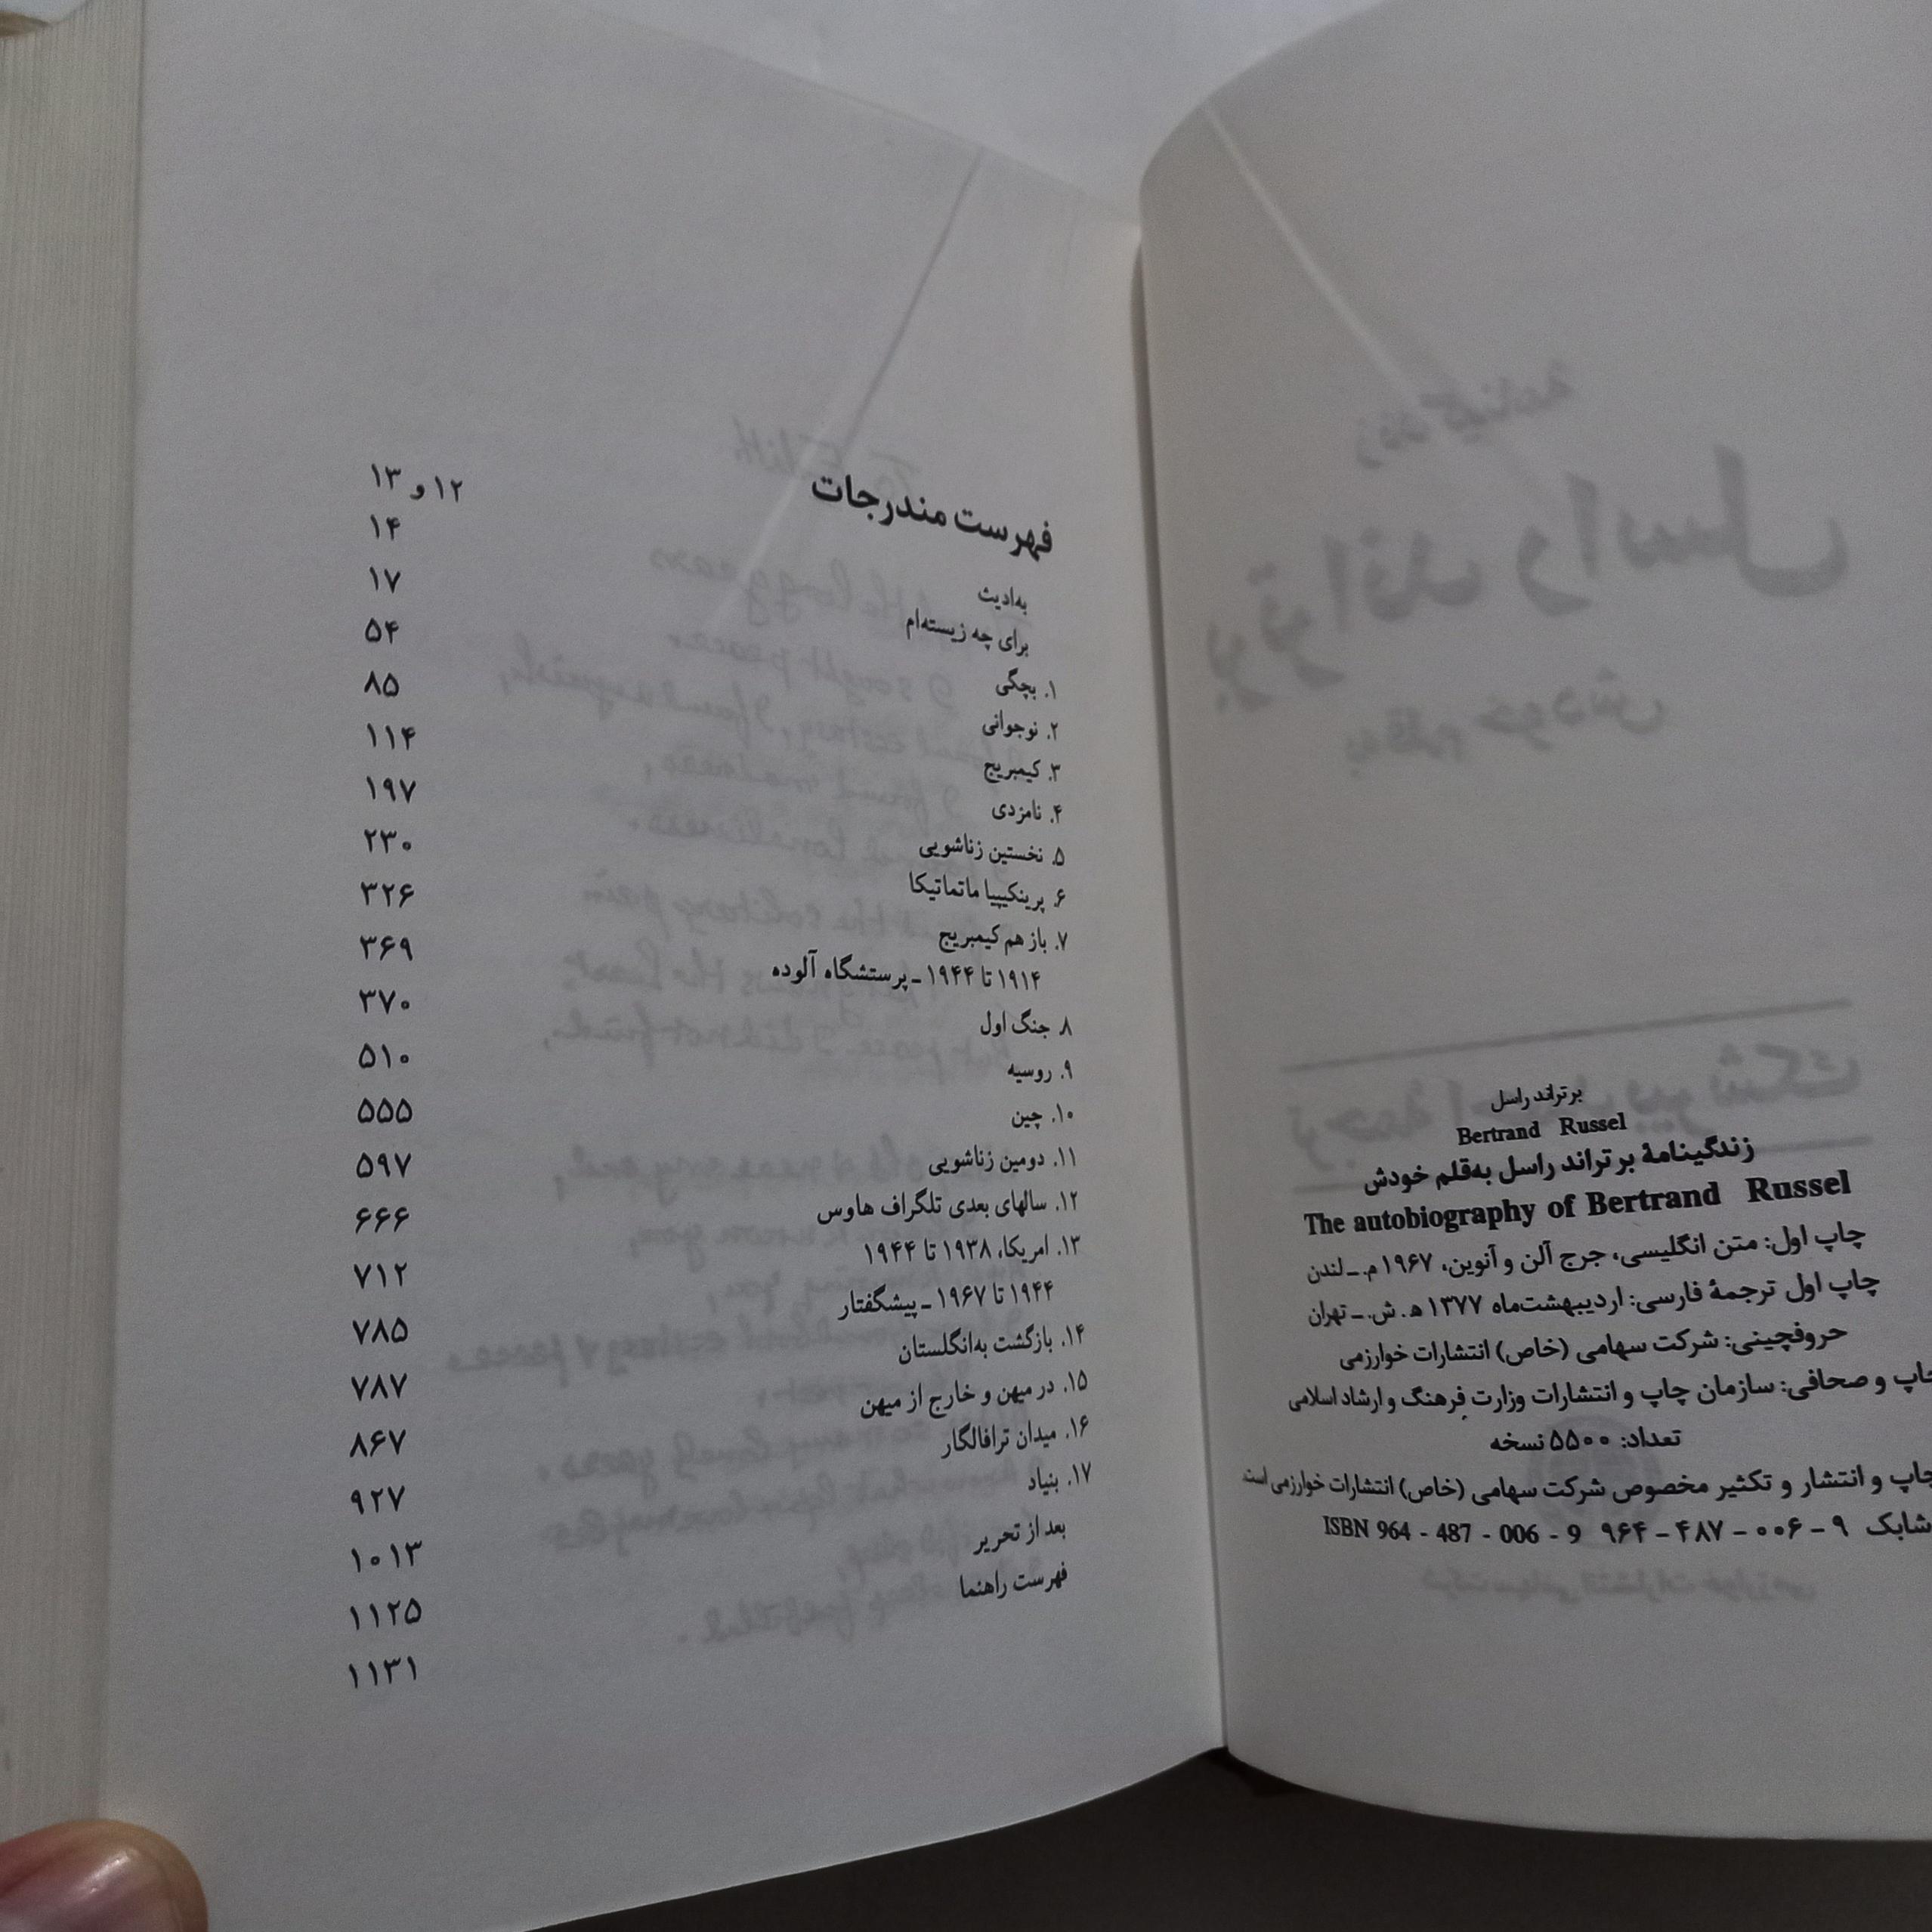 برتراند راسل
Bertrand Russel
زندگینامهٔ برتراند راسل به‌قلم خودش
The autobiography of Bertrand Russel
چاپ اول: متن انگلیسی، جرج آلن و آنوین، ۱۹۶۷ م. ـ لندن
چاپ اول ترجمهٔ فارسی: اردیبهشت‌ماه ۱۳۷۷ ه‍. ش. ـ تهران
حروفچینی: شرکت سهامی (خاص) انتشارات خوارزمی
چاپ و صحافی: سازمان چاپ و انتشارات وزارت فرهنگ و ارشاد اسلامی
تعداد: ۵۵۰۰ نسخه
چاپ و انتشار و تکثیر مخصوص شرکت سهامی (خاص) انتشارات خوارزمی است
شابک ۹ - ۰۰۶ - ۴۸۷ - ۹۶۴ ISBN 964 - 487 - 006 - 9
فهرست مندرجات
به‌ادیث ۱۲ و ۱۳
برای چه زیسته‌ام ۱۴
۱. بچگی ۱۷
۲. نوجوانی ۵۴
۳. کیمبریج ۸۵
۴. نامزدی ۱۱۴
۵. نخستین زناشویی ۱۹۷
۶. پرینکیپیا ماتماتیکا ۲۳۰
۷. باز هم کیمبریج ۳۲۶
۱۹۱۴ تا ۱۹۴۴ ـ پرستشگاه آلوده ۳۶۹
۸. جنگ اول ۳۷۰
۹. روسیه ۵۱۰
۱۰. چین ۵۵۵
۱۱. دومین زناشویی ۵۹۷
۱۲. سالهای بعدی تلگراف هاوس ۶۶۶
۱۳. امریکا، ۱۹۳۸ تا ۱۹۴۴ ۷۱۲
۱۹۴۴ تا ۱۹۶۷ ـ پیشگفتار ۷۸۵
۱۴. بازگشت به‌انگلستان ۷۸۷
۱۵. در میهن و خارج از میهن ۸۶۷
۱۶. میدان ترافالگار ۹۲۷
۱۷. بنیاد ۱۰۱۳
بعد از تحریر ۱۱۲۵
فهرست راهنما ۱۱۳۱